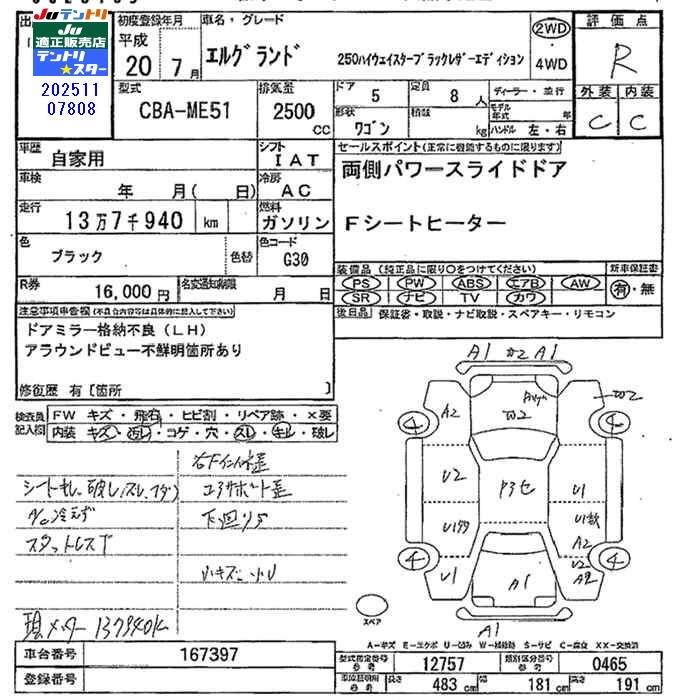 Juテントリ Ju
Ju
適正販売店
テントリ
★スター
202511
07808
初度登録年月
平成
20年 7月
車名・グレード
エルグランド
250ハイウェイスターブラックレザーエディション
2WD
4WD
評価点
R
外装 内装
C C
型式
CBA-ME51
排気量
2500 cc
ドア 5
定員 8人
形状 ワゴン
積載 kg
ディーラー・並行
モデル年式 年
ハンドル 左・右
車歴 自家用
シフト IAT
車検 年 月( 日)
冷房 AC
走行 13万7千940 km
燃料 ガソリン
色 ブラック 色替
色コード G30
R券 16,000円
名変通知期限 月 日
セールスポイント(正常に機能するものに限ります)
両側パワースライドドア
Fシートヒーター
装備品 (純正品に限り○をつけてください)
PS PW ABS エアB AW
SR ナビ TV カワ
新車保証書
有・無
後日品 保証書・取説・ナビ取説・スペアキー・リモコン
注意事項申告欄 (不具合内容等は具体的に記入して下さい)
ドアミラー格納不良(LH)
アラウンドビュー不鮮明箇所あり
修復歴 有〔箇所 〕
検査員記入欄
FW キズ・飛石・ヒビ割・リペア跡・×要
内装 キズ・汚れ・コゲ・穴・スレ・キレ・破レ
A/C冷えず
スタットレス
下廻りサ
小キズ・小U
現メーター 137940K
A1 カ2 A1
A2 W2 W2
U2 アヨセ U1
A2
U1 A1 U2
A2
A1
4 4 4 4
スペア
A-キズ E-エクボ U-凹み W-補修跡 S-サビ C-腐食 XX-交換済
車台番号 167397
登録番号
型式指定番号 参考 12757
類別区分番号 参考 0465
車検証明細 参考 長さ 483cm 幅 181cm 高さ 191cm